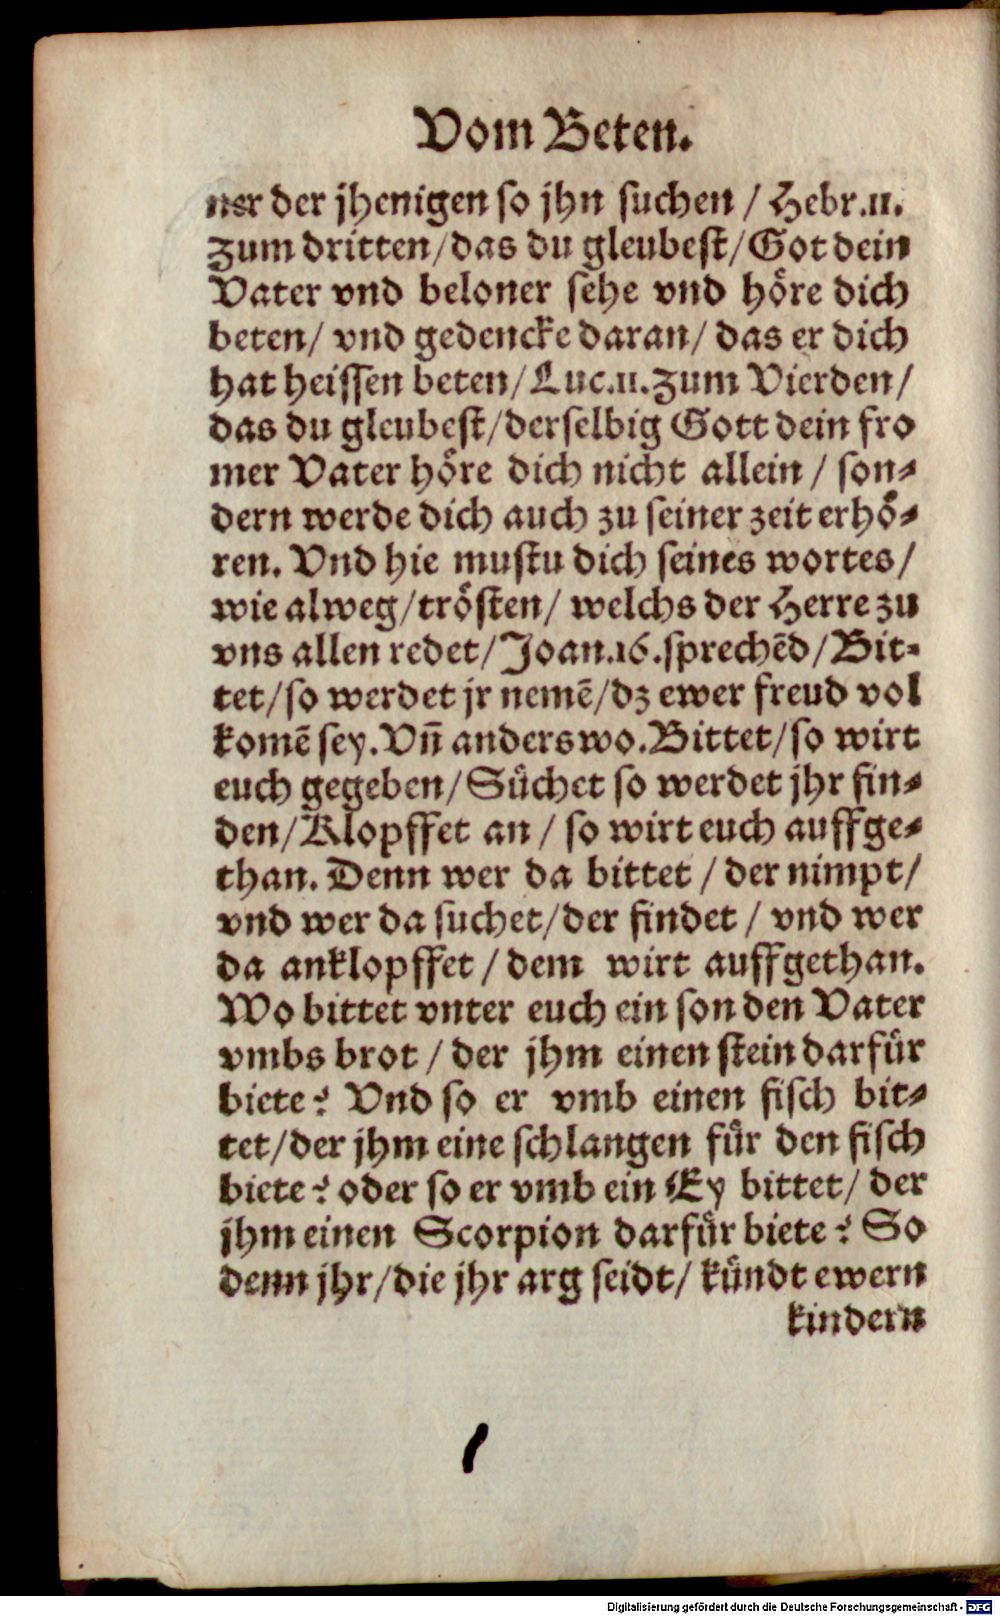 Vom Beten.
ner der jhenigen so jhn suchen / Hebr.11.
Zum dritten/das du gleubest/Got dein
Vater vnd beloner sehe vnd höre dich
beten/ vnd gedencke daran/ das er dich
hat heissen beten/Luc.11.Zum Vierden/
das du gleubest/derselbig Gott dein fro
mer Vater höre dich nicht allein / son-
dern werde dich auch zu seiner zeit erhö-
ren. Vnd hie mustu dich seines wortes/
wie alweg/trösten/ welchs der Herre zu
vns allen redet/Joan.16.sprechēd/Bit-
tet/so werdet jr nemē/dz ewer freud vol
komē sey.Vn̄ anderswo.Bittet/so wirt
euch gegeben/Süchet so werdet jhr fin-
den/Klopffet an / so wirt euch auffge-
than. Denn wer da bittet / der nimpt/
vnd wer da suchet/der findet / vnd wer
da anklopffet / dem wirt auffgethan.
Wo bittet vnter euch ein son den Vater
vmbs brot / der jhm einen stein darfür
biete? Vnd so er vmb einen fisch bit-
tet/der jhm eine schlangen für den fisch
biete? oder so er vmb ein Ey bittet/ der
jhm einen Scorpion darfür biete? So
denn jhr/die jhr arg seidt/ kündt ewern
kindern
Digitalisierung gefördert durch die Deutsche Forschungsgemeinschaft - DFG